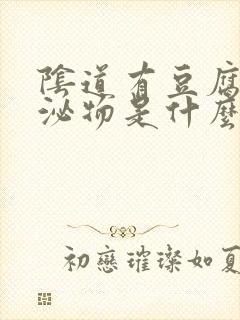 陰道有豆腐
泌物是什麼
初戀璀璨如夏